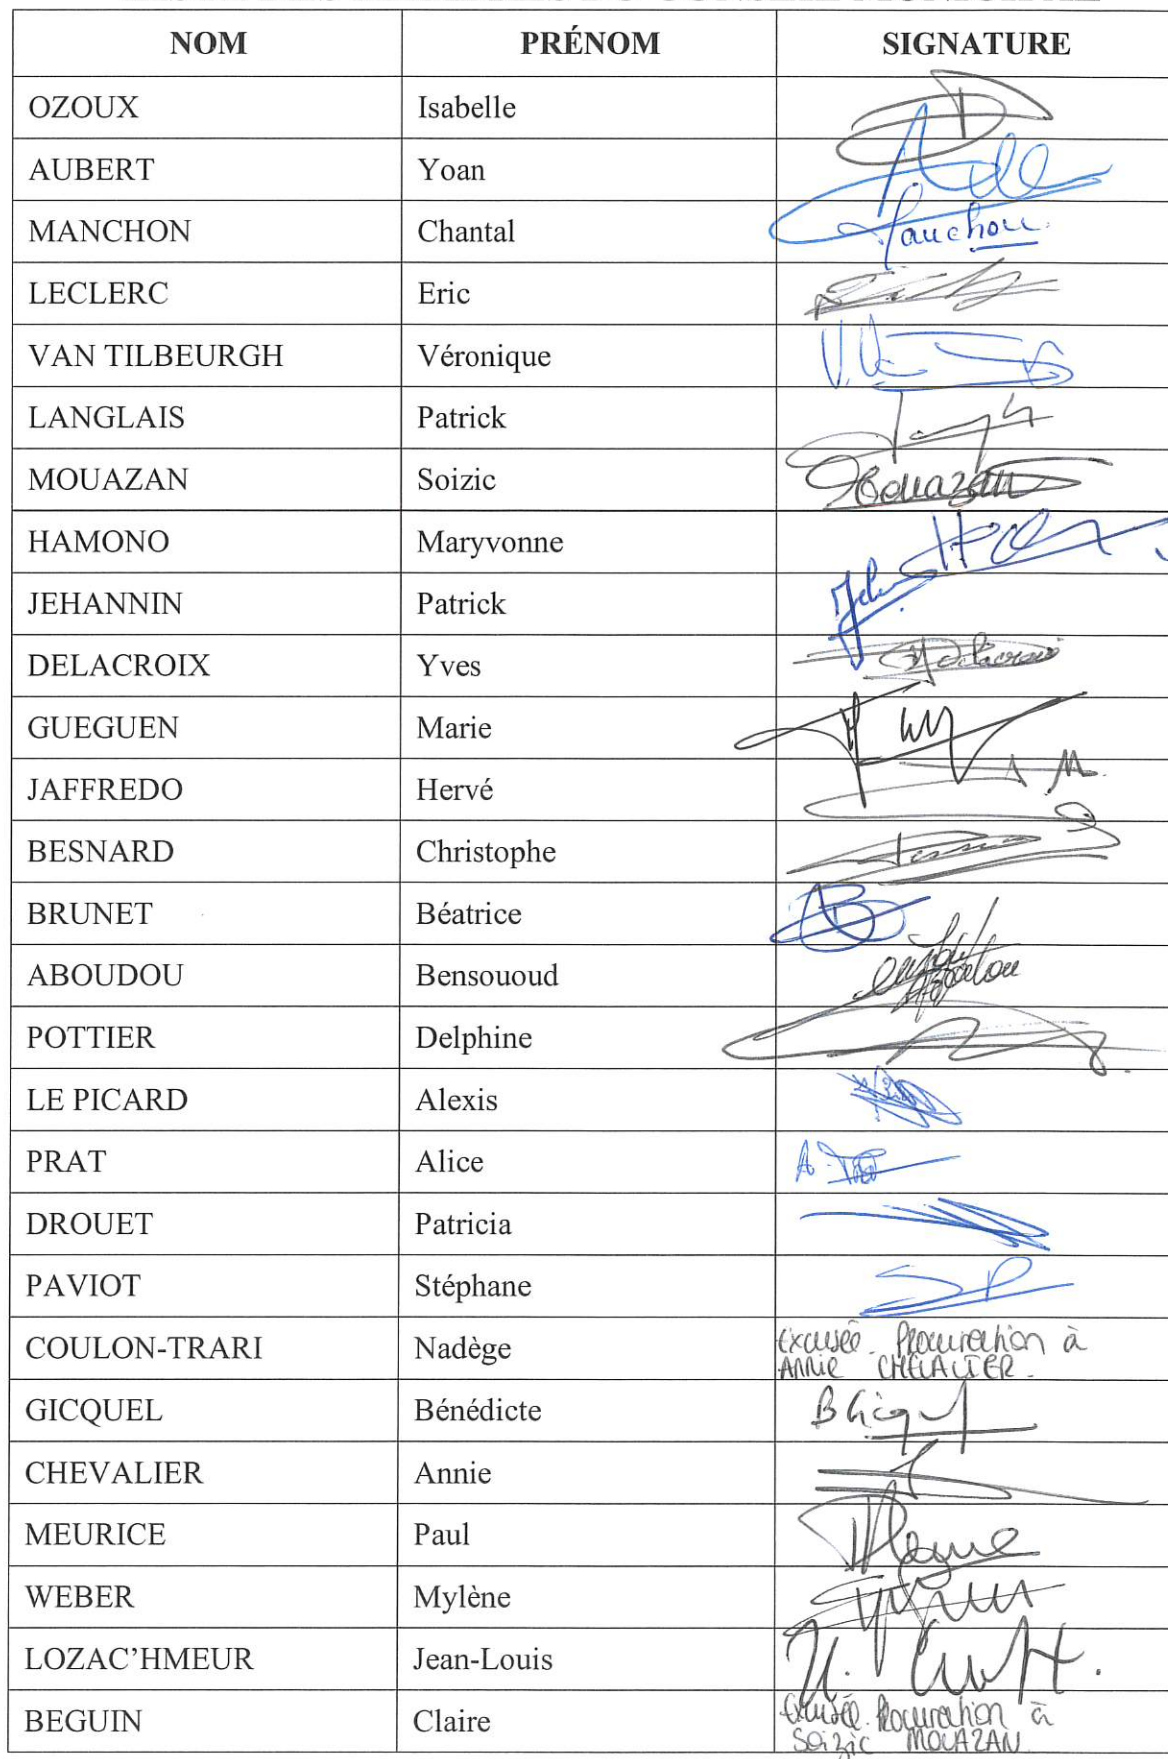 NOM PRÉNOM SIGNATURE
OZOUX Isabelle
AUBERT Yoan
MANCHON Chantal Manchon
LECLERC Eric
VAN TILBEURGH Véronique
LANGLAIS Patrick
MOUAZAN Soizic Mouazan
HAMONO Maryvonne
JEHANNIN Patrick
DELACROIX Yves Delacroix
GUEGUEN Marie
JAFFREDO Hervé
BESNARD Christophe
BRUNET Béatrice
ABOUDOU Bensououd
POTTIER Delphine
LE PICARD Alexis
PRAT Alice
DROUET Patricia
PAVIOT Stéphane SP
COULON-TRARI Nadège Excusée. Procuration à
ANNIE CHEVALIER.
GICQUEL Bénédicte B Gicquel
CHEVALIER Annie
MEURICE Paul
WEBER Mylène
LOZAC'HMEUR Jean-Louis
BEGUIN Claire Excusée. Procuration à
Soizic MOUAZAN